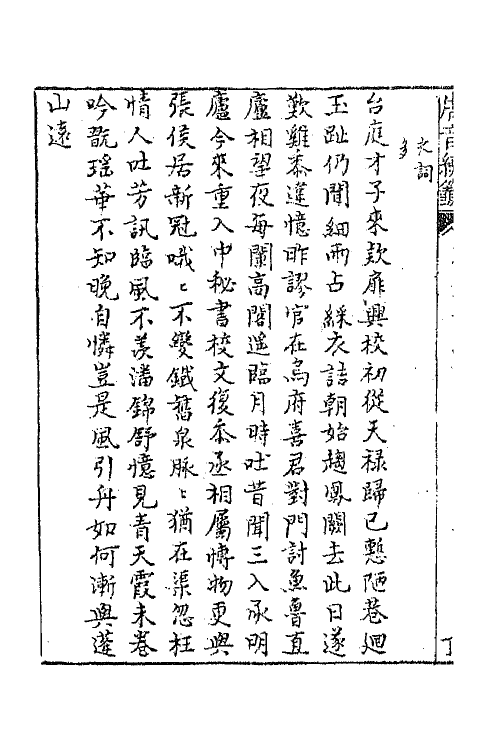 唐音統籤
衣詞
多
台庭才子來欵扉興校初從天禄歸已慙陋巷廻
玉趾仍聞細雨占綵衣詰朝始趨鳳闕去此日遂
歎雞黍違憶昨謬官在烏府喜君對門討魚魯直
廬相望夜每闌高閣遥臨月時吐昔聞三入承明
廬今來重入中秘書校文復忝丞相屬博物更與
張侯居新冠峨〻不變鐵舊泉脉〻猶在渠忽枉
情人吐芳訊臨風不羡潘錦舒憶見青天霞未卷
吟翫瑶華不知晚自憐豈是風引舟如何漸與蓬
山遠